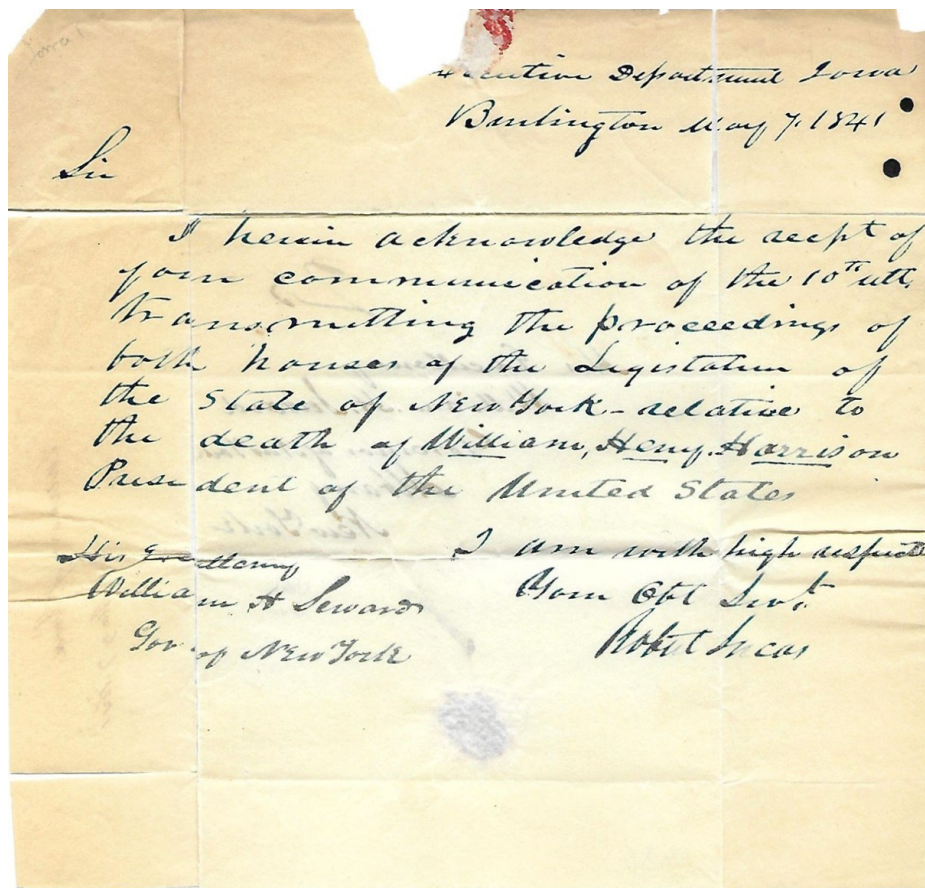 Iowa
Executive Department Iowa
Burlington May 7. 1841
Sir
I herein acknowledge the recpt of
your communication of the 10th ult.
transmitting the proceedings of
both houses of the Legislature of
the State of New York - relative to
the death of William, Henry. Harrison
President of the United States
I am with high respect
Your Obt Servt.
Robert Lucas
His Excellency
William H Seward
Gov of New York
New York